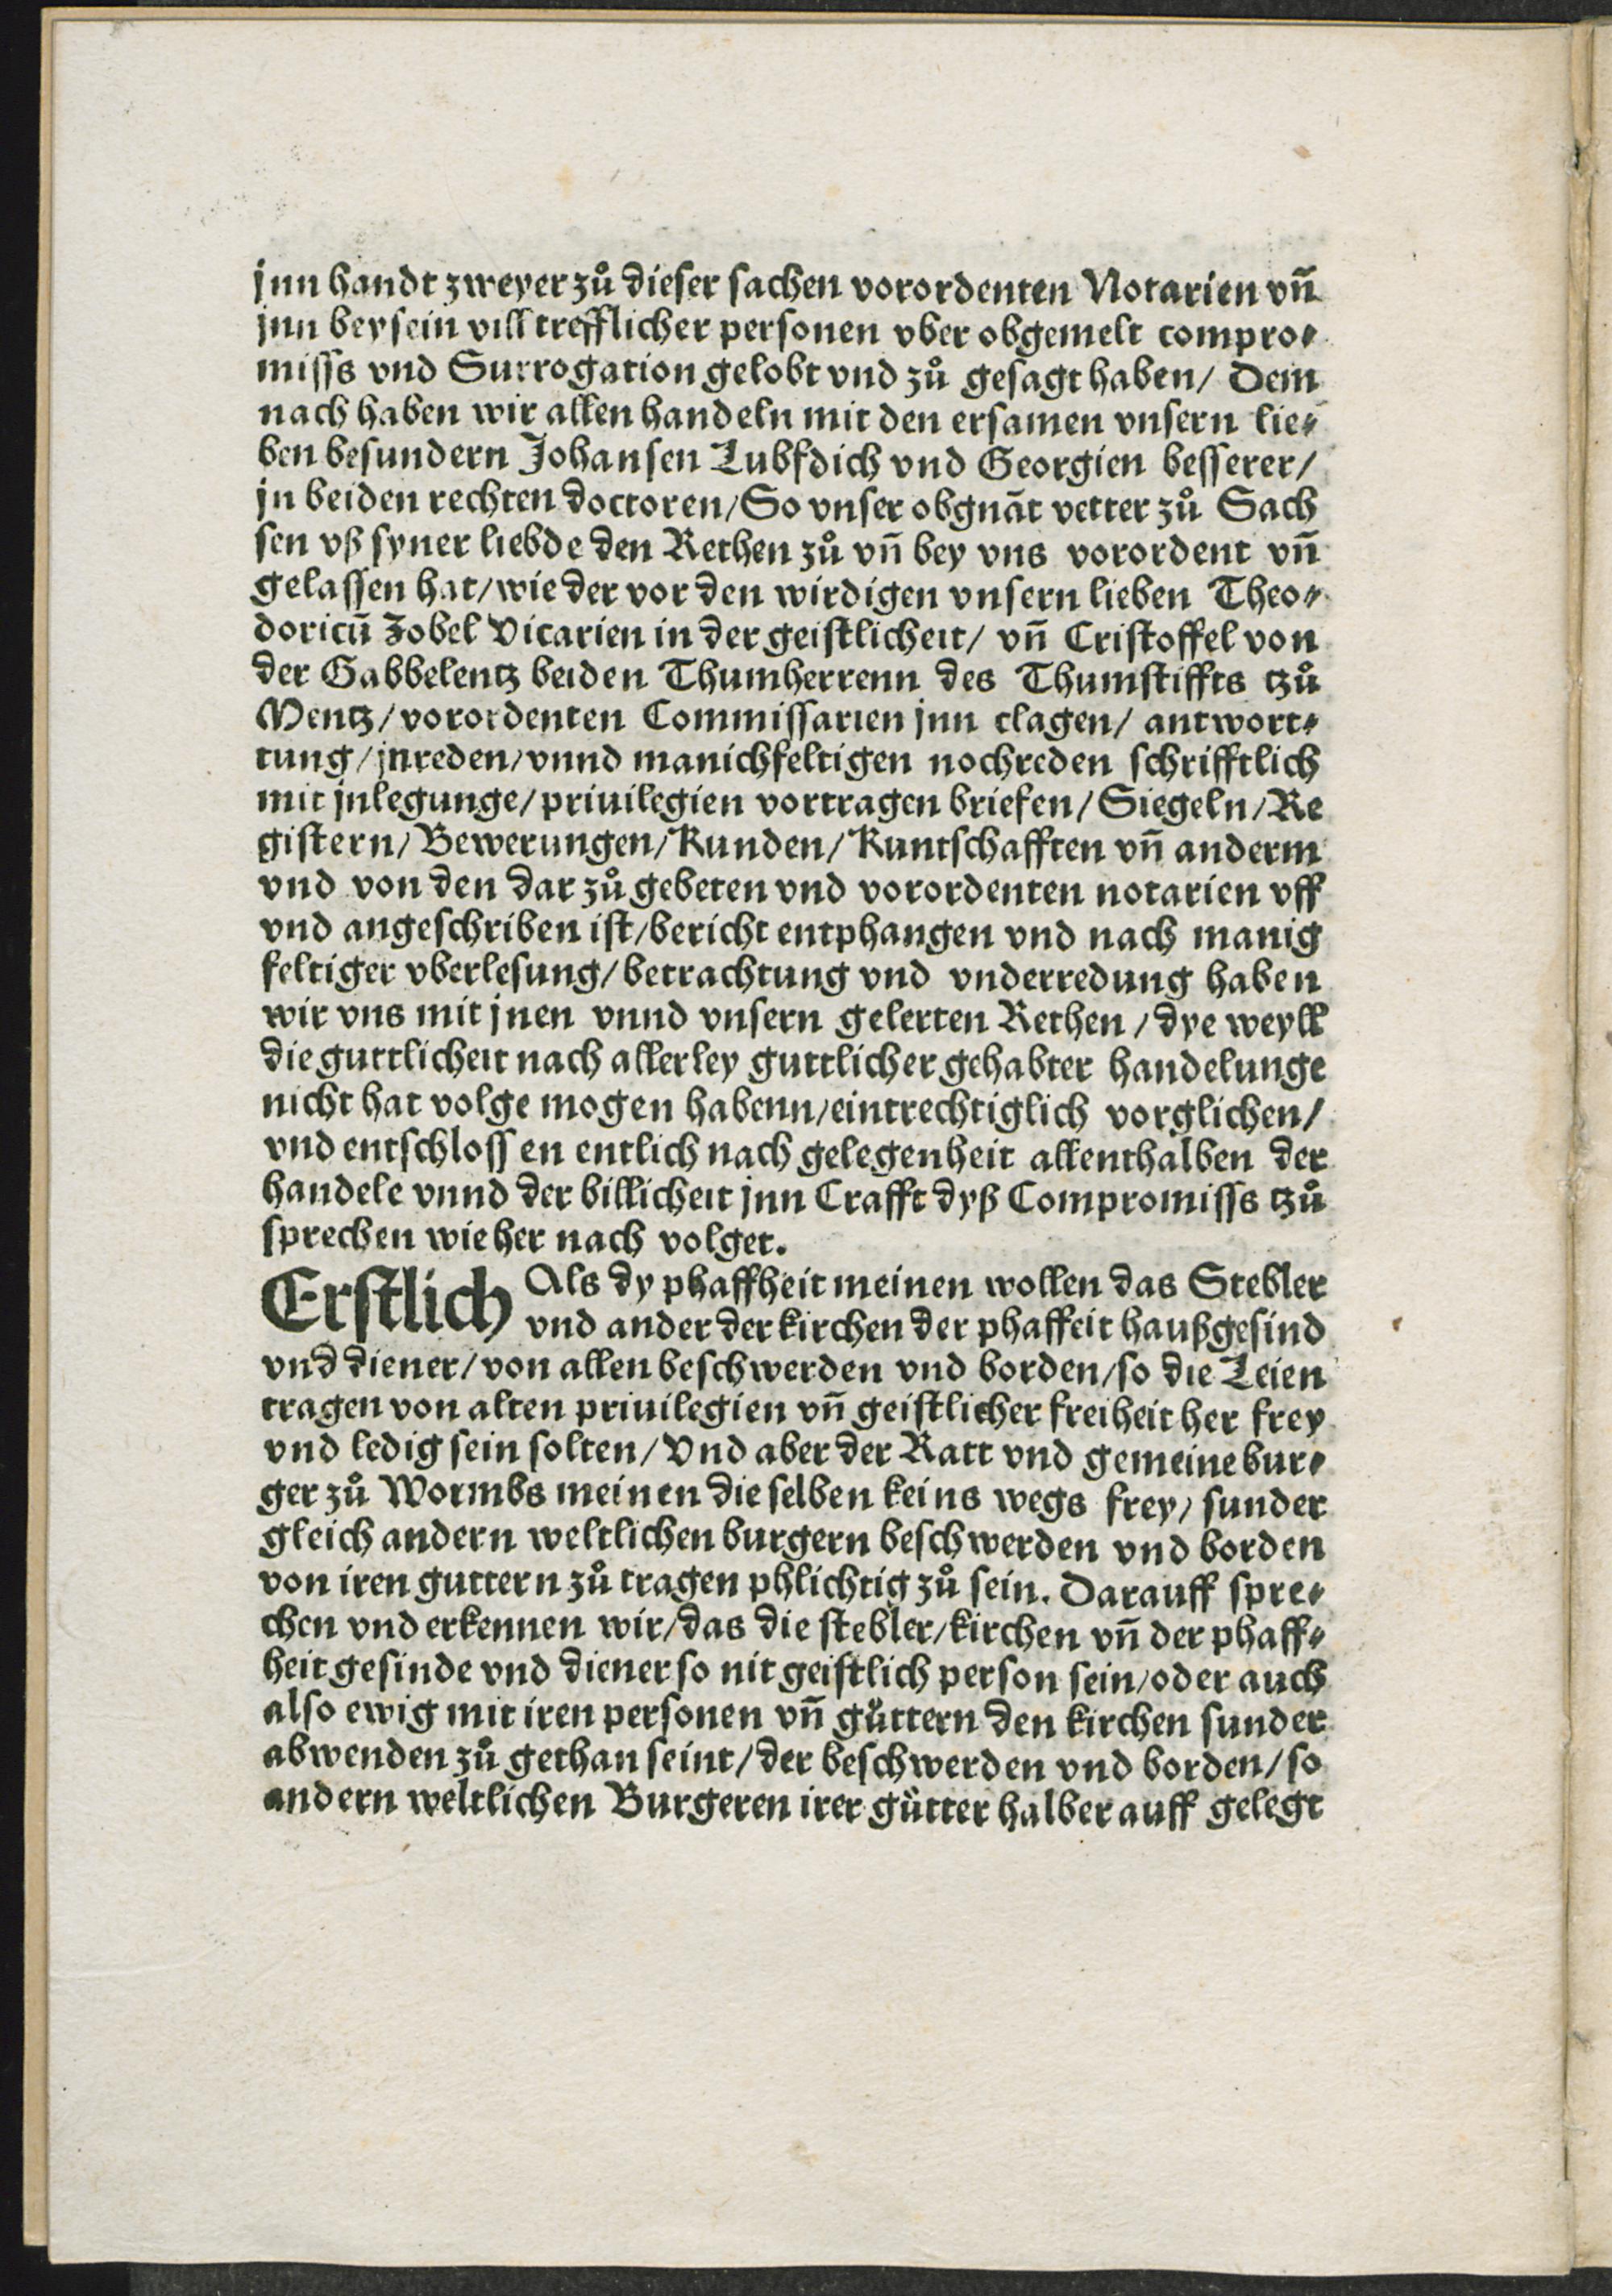 jnn handt zweyer zů dieser sachen vorordenten Notarien vñ
jnn beysein vill trefflicher personen vber obgemelt compro⸗
misss vnd Surrogation gelobt vnd zů gesagt haben/ Dem
nach haben wir allen handeln mit den ersamen vnsern lie⸗
ben besundern Johansen Lubfdich vnd Georgien besserer/
jn beiden rechten doctoren/ So vnser obgnāt vetter zů Sach
sen vß syner liebde den Rethen zů vñ bey vns vorordent vñ
gelassen hat/ wie der vor den wirdigen vnsern lieben Theo⸗
doricū Zobel Vicarien in der geistlicheit/ vñ Cristoffel von
der Gabbelentz beiden Thumherrenn des Thumstiffts tzů
Mentz/ vorordenten Commissarien jnn clagen/ antwort⸗
tung/ jnreden/ vnnd manichfeltigen nochreden schrifftlich
mit jnlegunge/ priuilegien vortragen briefen/ Siegeln/ Re
gistern/ Bewerungen/ Kunden/ Kuntschafften vñ anderm
vnd von den dar zů gebeten vnd vorordenten notarien vff
vnd angeschriben ist/ bericht entphangen vnd nach manig
feltiger vberlesung/ betrachtung vnd vnderredung haben
wir vns mit jnen vnnd vnsern gelerten Rethen/ dye weyll
die guttlicheit nach allerley guttlicher gehabter handelunge
nicht hat volge mogen habenn/ eintrechtiglich vorglichen/
vnd entschlossen entlich nach gelegenheit allenthalben der
handele vnnd der billicheit jnn Crafft dyß Compromisss tzů
sprechen wie her nach volget.
Erstlich Als dy phaffheit meinen wollen das Stebler
vnd ander der kirchen der phaffeit haußgesind
vnd diener/ von allen beschwerden vnd borden/ so die Leien
tragen von alten priuilegien vñ geistlicher freiheit her frey
vnd ledig sein solten/ Vnd aber der Ratt vnd gemeine bur⸗
ger zů Wormbs meinen die selben keins wegs frey/ sunder
gleich andern weltlichen burgern beschwerden vnd borden
von iren guttern zů tragen phlichtig zů sein. Darauff spre⸗
chen vnd erkennen wir/ das die stebler/ kirchen vñ der phaff⸗
heit gesinde vnd diener so nit geistlich person sein/ oder auch
also ewig mit iren personen vñ gůttern den kirchen sunder
abwenden zů gethan seint/ der beschwerden vnd borden/ so
andern weltlichen Burgeren irer gůtter halber auff gelegt